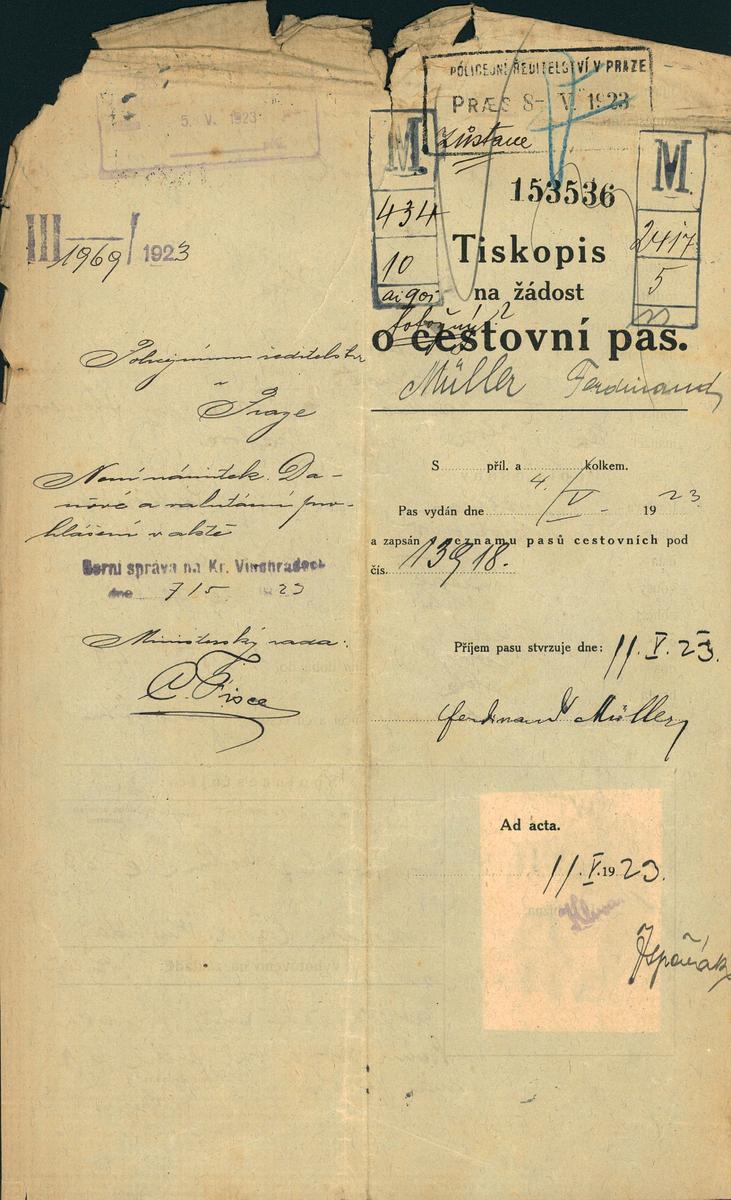 5. V. 1923
III 1969 / 1923
Policejnímu ředitelství
v
Praze
Není námitek. Da-
ňové a valutární pro-
hlášení v aktě
Berní správa na Kr. Vinohradech
dne 7/5 1923
Ministerský rada:
POLICEJNÍ ŘEDITELSTVÍ V PRAZE
PRÆS 8- V. 1923
Zůstane
M
434
10
M
2417
5
153536
Tiskopis
na žádost
o cestovní pas.
Müller Ferdinand
S příl. a kolkem.
Pas vydán dne 4./V 1923
a zapsán v seznamu pasů cestovních pod
čís. 13918.
Příjem pasu stvrzuje dne: 11. V. 23.
Ferdinand Müller
Ad acta.
11. V. 1923.